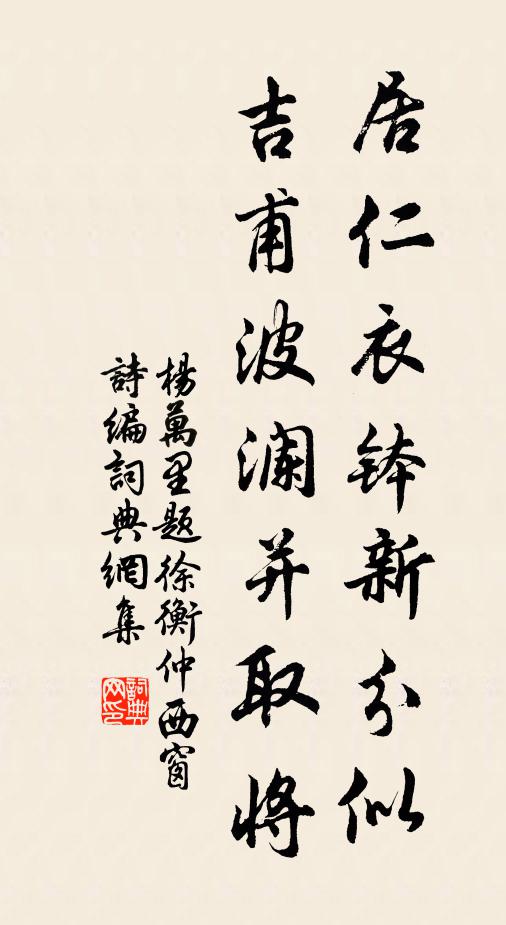 居仁衣钵新分似
吉甫波澜并取將
楊萬里题徐衡仲西窗
詩编詞典網集
詞典
网印